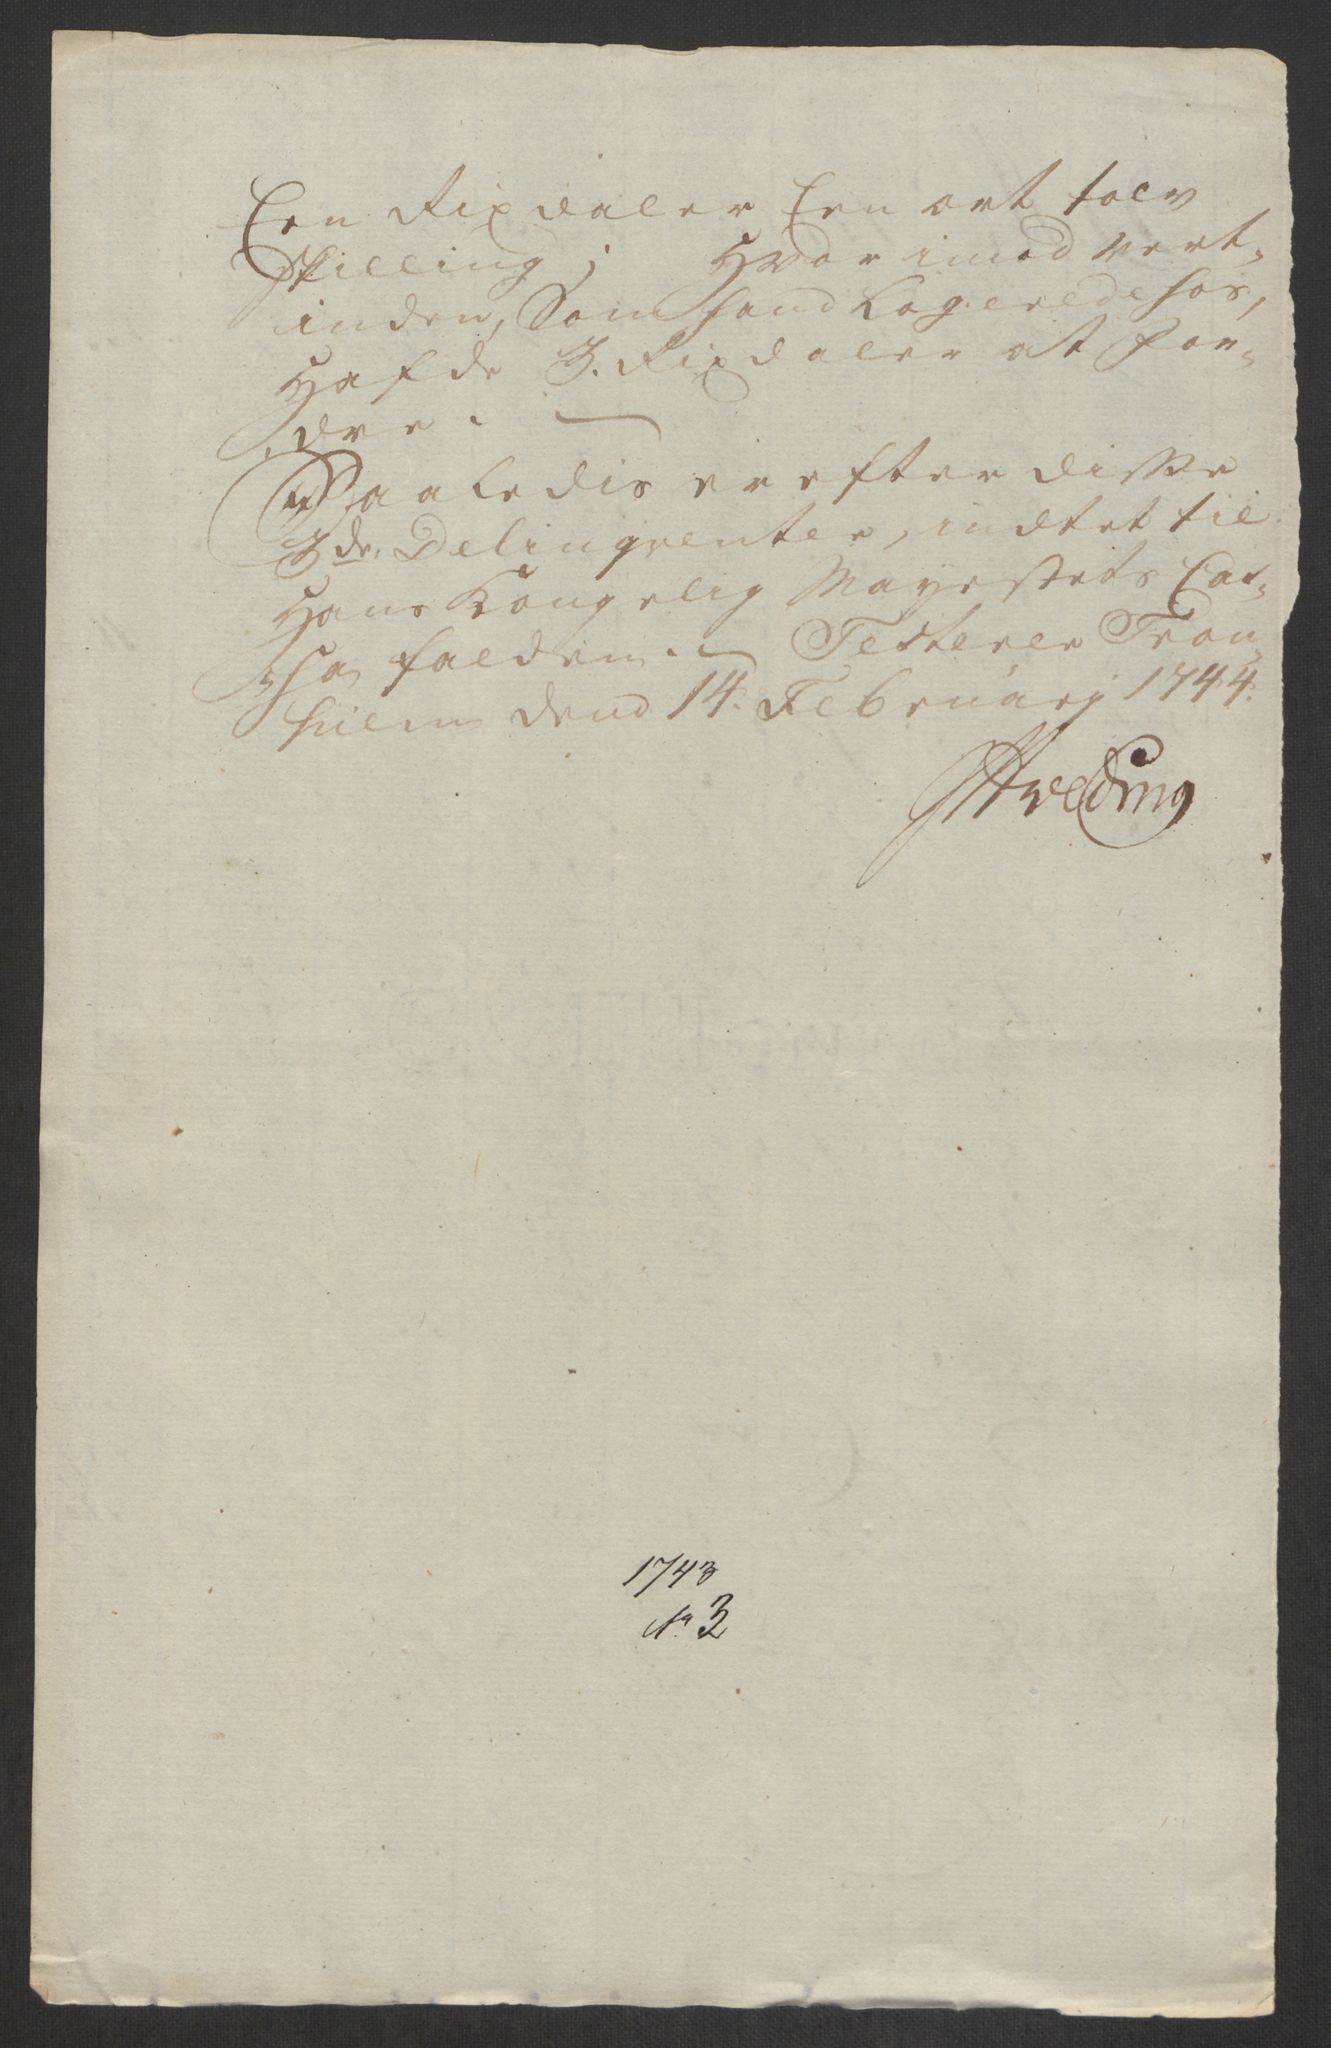 Een Rixdaler Een ort tolv
Skilling; Hvorimod vert-
inden, Som hand Logerede hos,
Hafde 3. Rixdaler at for-
dre.
Saaledis er efter disse
3de Delinqventer, indtet til
Hans Kongelig Mayestets Cas-
sa falden. Testerer Tron-
hiem dend 14. Februarj 1744.
Hveding
1743
No 3